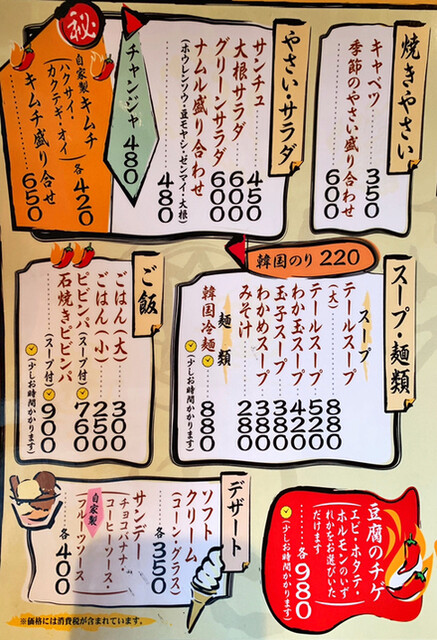 焼きやさい
キャベツ 350
季節のやさい盛り合わせ 600
やさい・サラダ
サンチュ 450
大根サラダ 600
グリーンサラダ 600
ナムル盛り合わせ 480
(ホウレンソウ・豆モヤシ・ゼンマイ・大根)
チャンジャ 480
㊙
自家製 キムチ 各420
(ハクサイ・カクテキ・オイ)
キムチ盛り合わせ 650
韓国のり 220
スープ・麺類
スープ
テールスープ(大) 880
テールスープ 520
わか玉スープ 420
玉子スープ 380
わかめスープ 380
みそ汁 220
麺類
韓国冷麺 880
(少しお時間かかります)
ご飯
ごはん(大) 300
ごはん(小) 250
ビビンパ(スープ付) 760
石焼きビビンパ(スープ付) 900
(少しお時間かかります)
豆腐のチゲ
エビ・ホタテ・
ホルモンのいず
れかをお選びいた
だけます 各980
(少しお時間かかります)
デザート
ソフト
クリーム
(コーン・グラス) 各350
サンデー
チョコバナナ・
コーヒーソース・
自家製
フルーツソース 各400
※価格には消費税が含まれています。